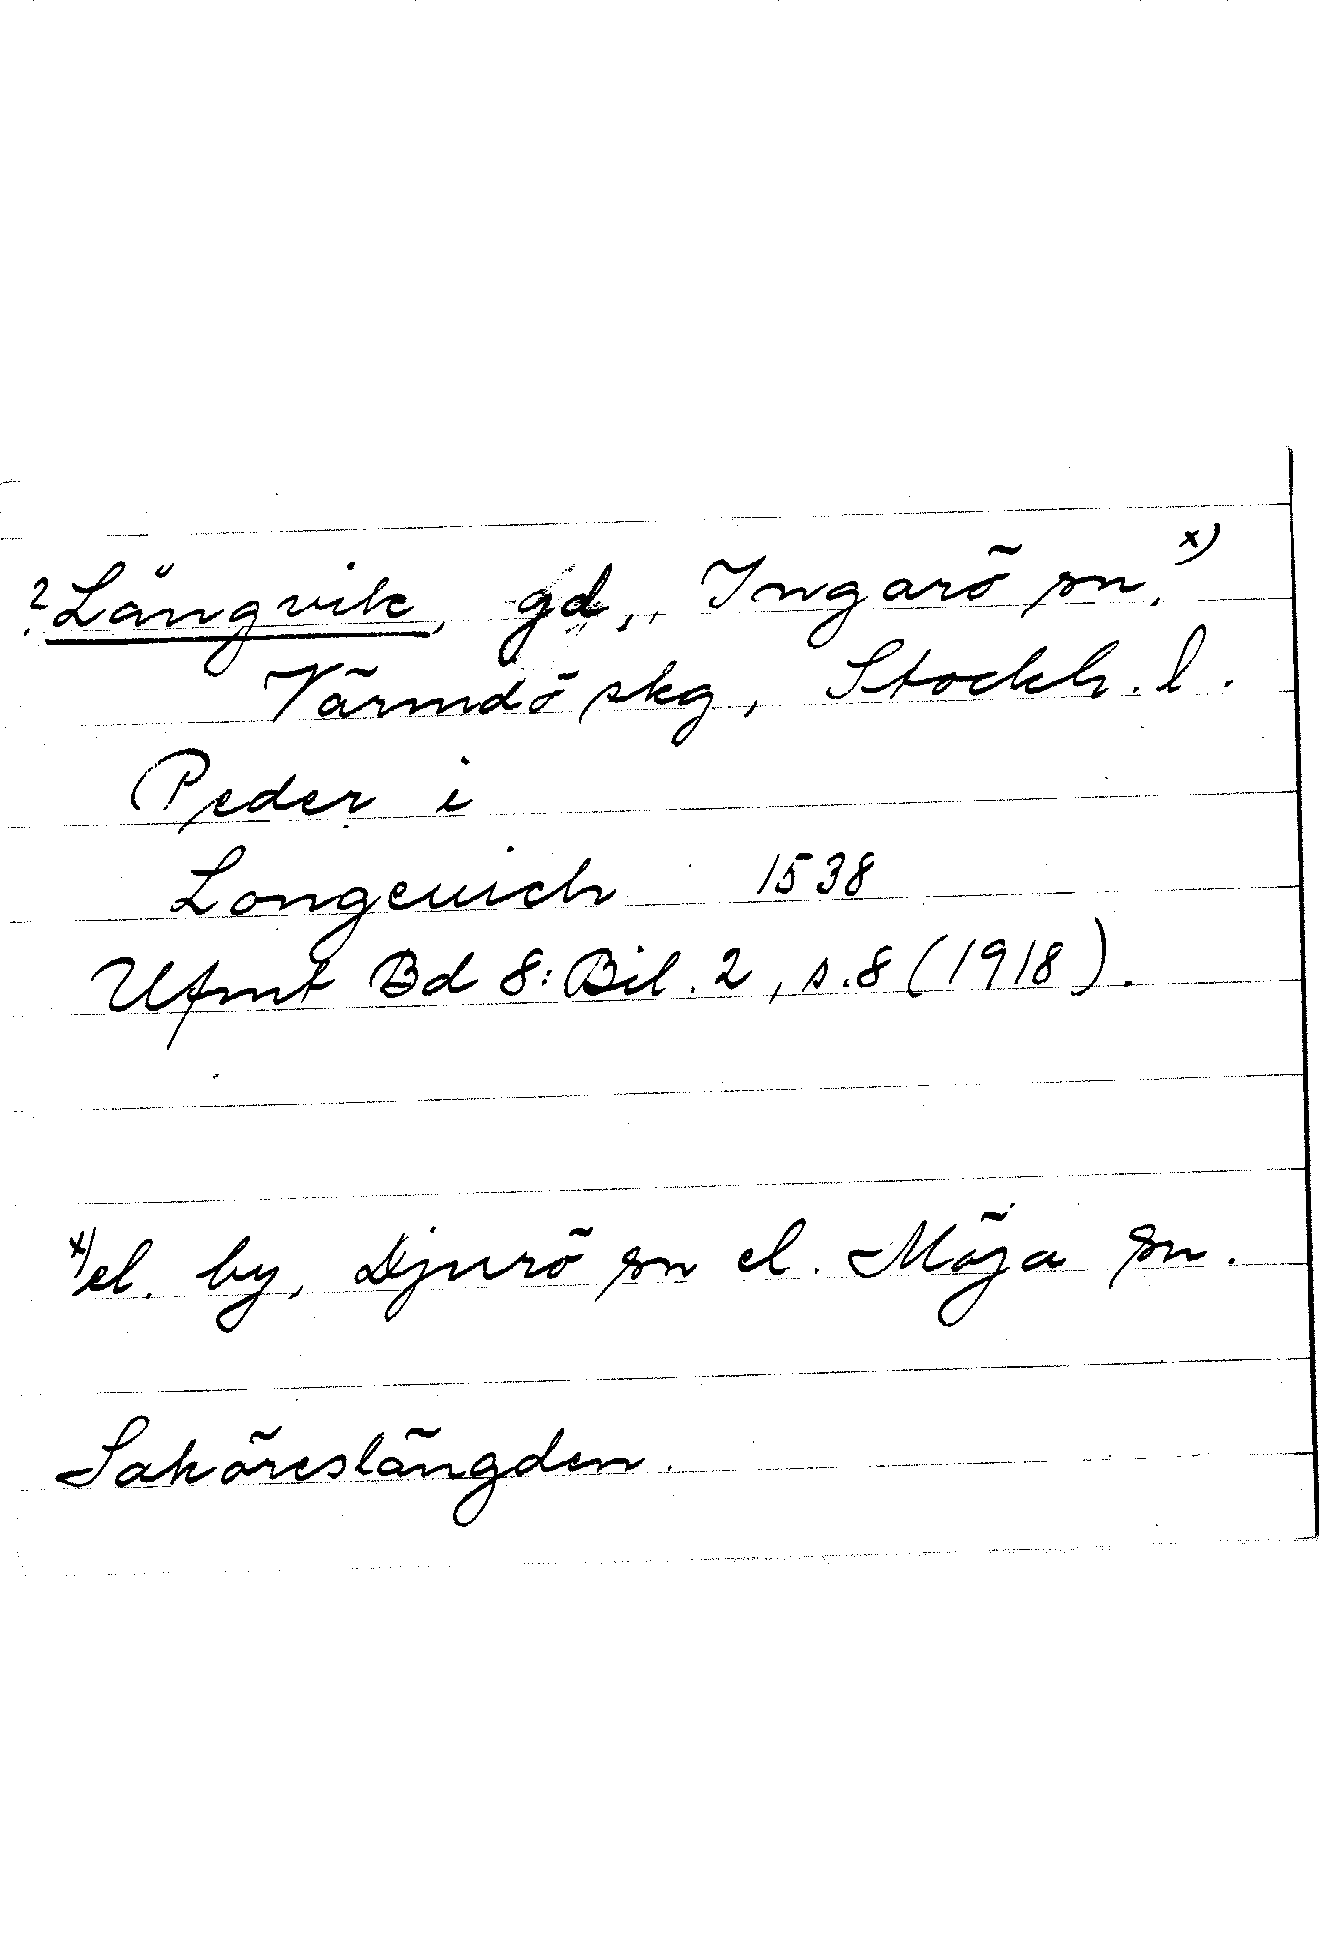 ? Långvik, gd, Ingarö sn, x)
Värmdö skg, Stockh. l.
Peder i
Longeuich 1538
Ufmt Bd 8: Bil. 2, s. 8 (1918).
x) el. by, Djurö sn el. Möja sn.
Saköreslängden.